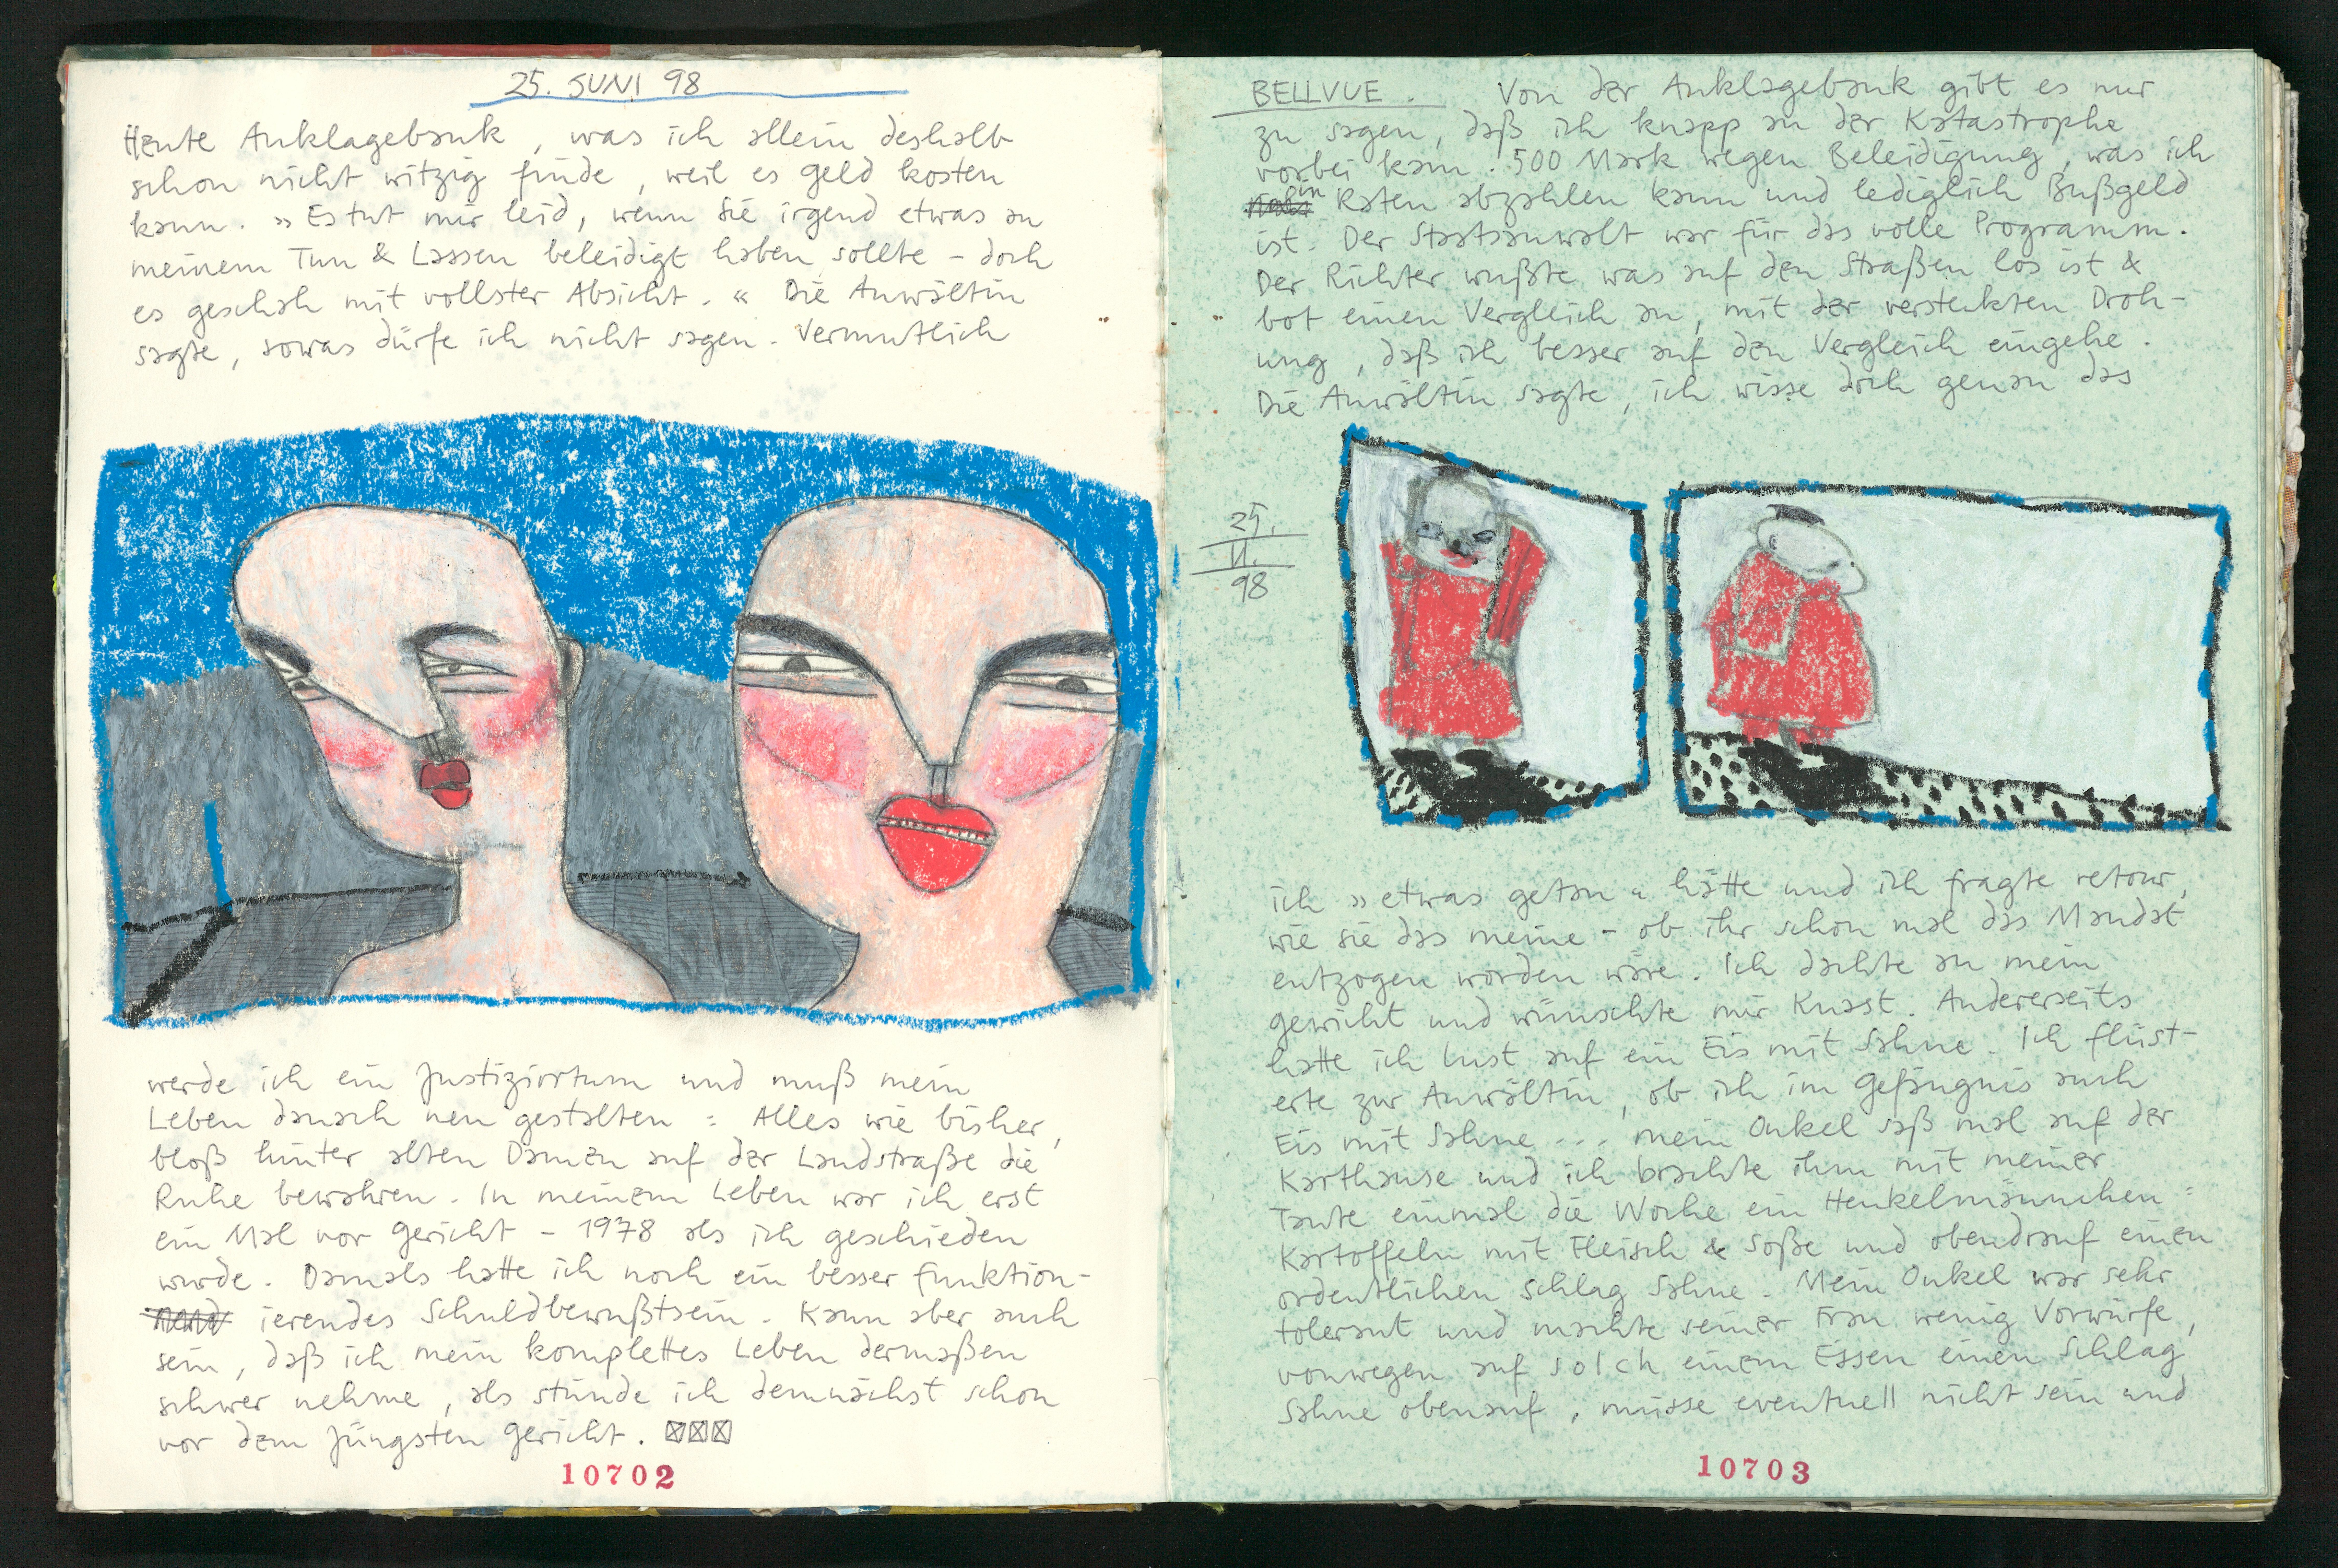 25. JUNI 98
Heute Anklagebank, was ich allein deshalb
schon nicht witzig finde, weil es Geld kosten
kann. »Es tut mir leid, wenn Sie irgend etwas an
meinem Tun & Lassen beleidigt haben sollte - doch
es geschah mit vollster Absicht.« Die Anwältin
sagte, sowas dürfe ich nicht sagen. Vermutlich
werde ich ein Justiziirtum und muß mein
Leben danach neu gestalten: Alles wie bisher,
bloß hinter alten Damen auf der Landstraße die
Ruhe bewahren. In meinem Leben war ich erst
ein Mal vor Gericht - 1978 als ich geschieden
wurde. Damals hatte ich noch ein besser funktion-
ierendes Schuldbewußtsein. Kann aber auch
sein, daß ich mein komplettes Leben dermaßen
schwer nehme, als stünde ich demnächst schon
vor dem Jüngsten Gericht.
10702
BELLVUE. Von der Anklagebank gibt es nur
zu sagen, daß ich knapp an der Katastrophe
vorbei kam. 500 Mark wegen Beleidigung, was ich
in Raten abzahlen kann und lediglich Bußgeld
ist. Der Staatsanwalt war für das volle Programm.
Der Richter wußte was auf den Straßen los ist &
bot einen Vergleich an, mit der versteckten Droh-
ung, daß ich besser auf den Vergleich eingehe.
Die Anwältin sagte, ich wisse doch genau das
25.
VI.
98
ich »etwas getan« hätte und ich fragte retour,
wie sie das meine - ob ihr schon mal das Mandat
entzogen worden wäre. Ich dachte an mein
gewicht und wünschte mir Knast. Andererseits
hatte ich Lust auf ein Eis mit Sahne. Ich flüst-
erte zur Anwältin, ob ich im Gefängnis auch
Eis mit Sahne ... mein Onkel saß mal auf der
Karthause und ich brachte ihm mit meiner
Tante einmal die Woche ein Henkelmännchen:
Kartoffeln mit Fleisch & Soße und obendrauf einen
ordentlichen Schlag Sahne. Mein Onkel war sehr
tolerant und machte seiner Frau wenig Vorwürfe,
vonwegen auf solch einem Essen einen Schlag
Sahne obenauf, müsse eventuell nicht sein und
10703